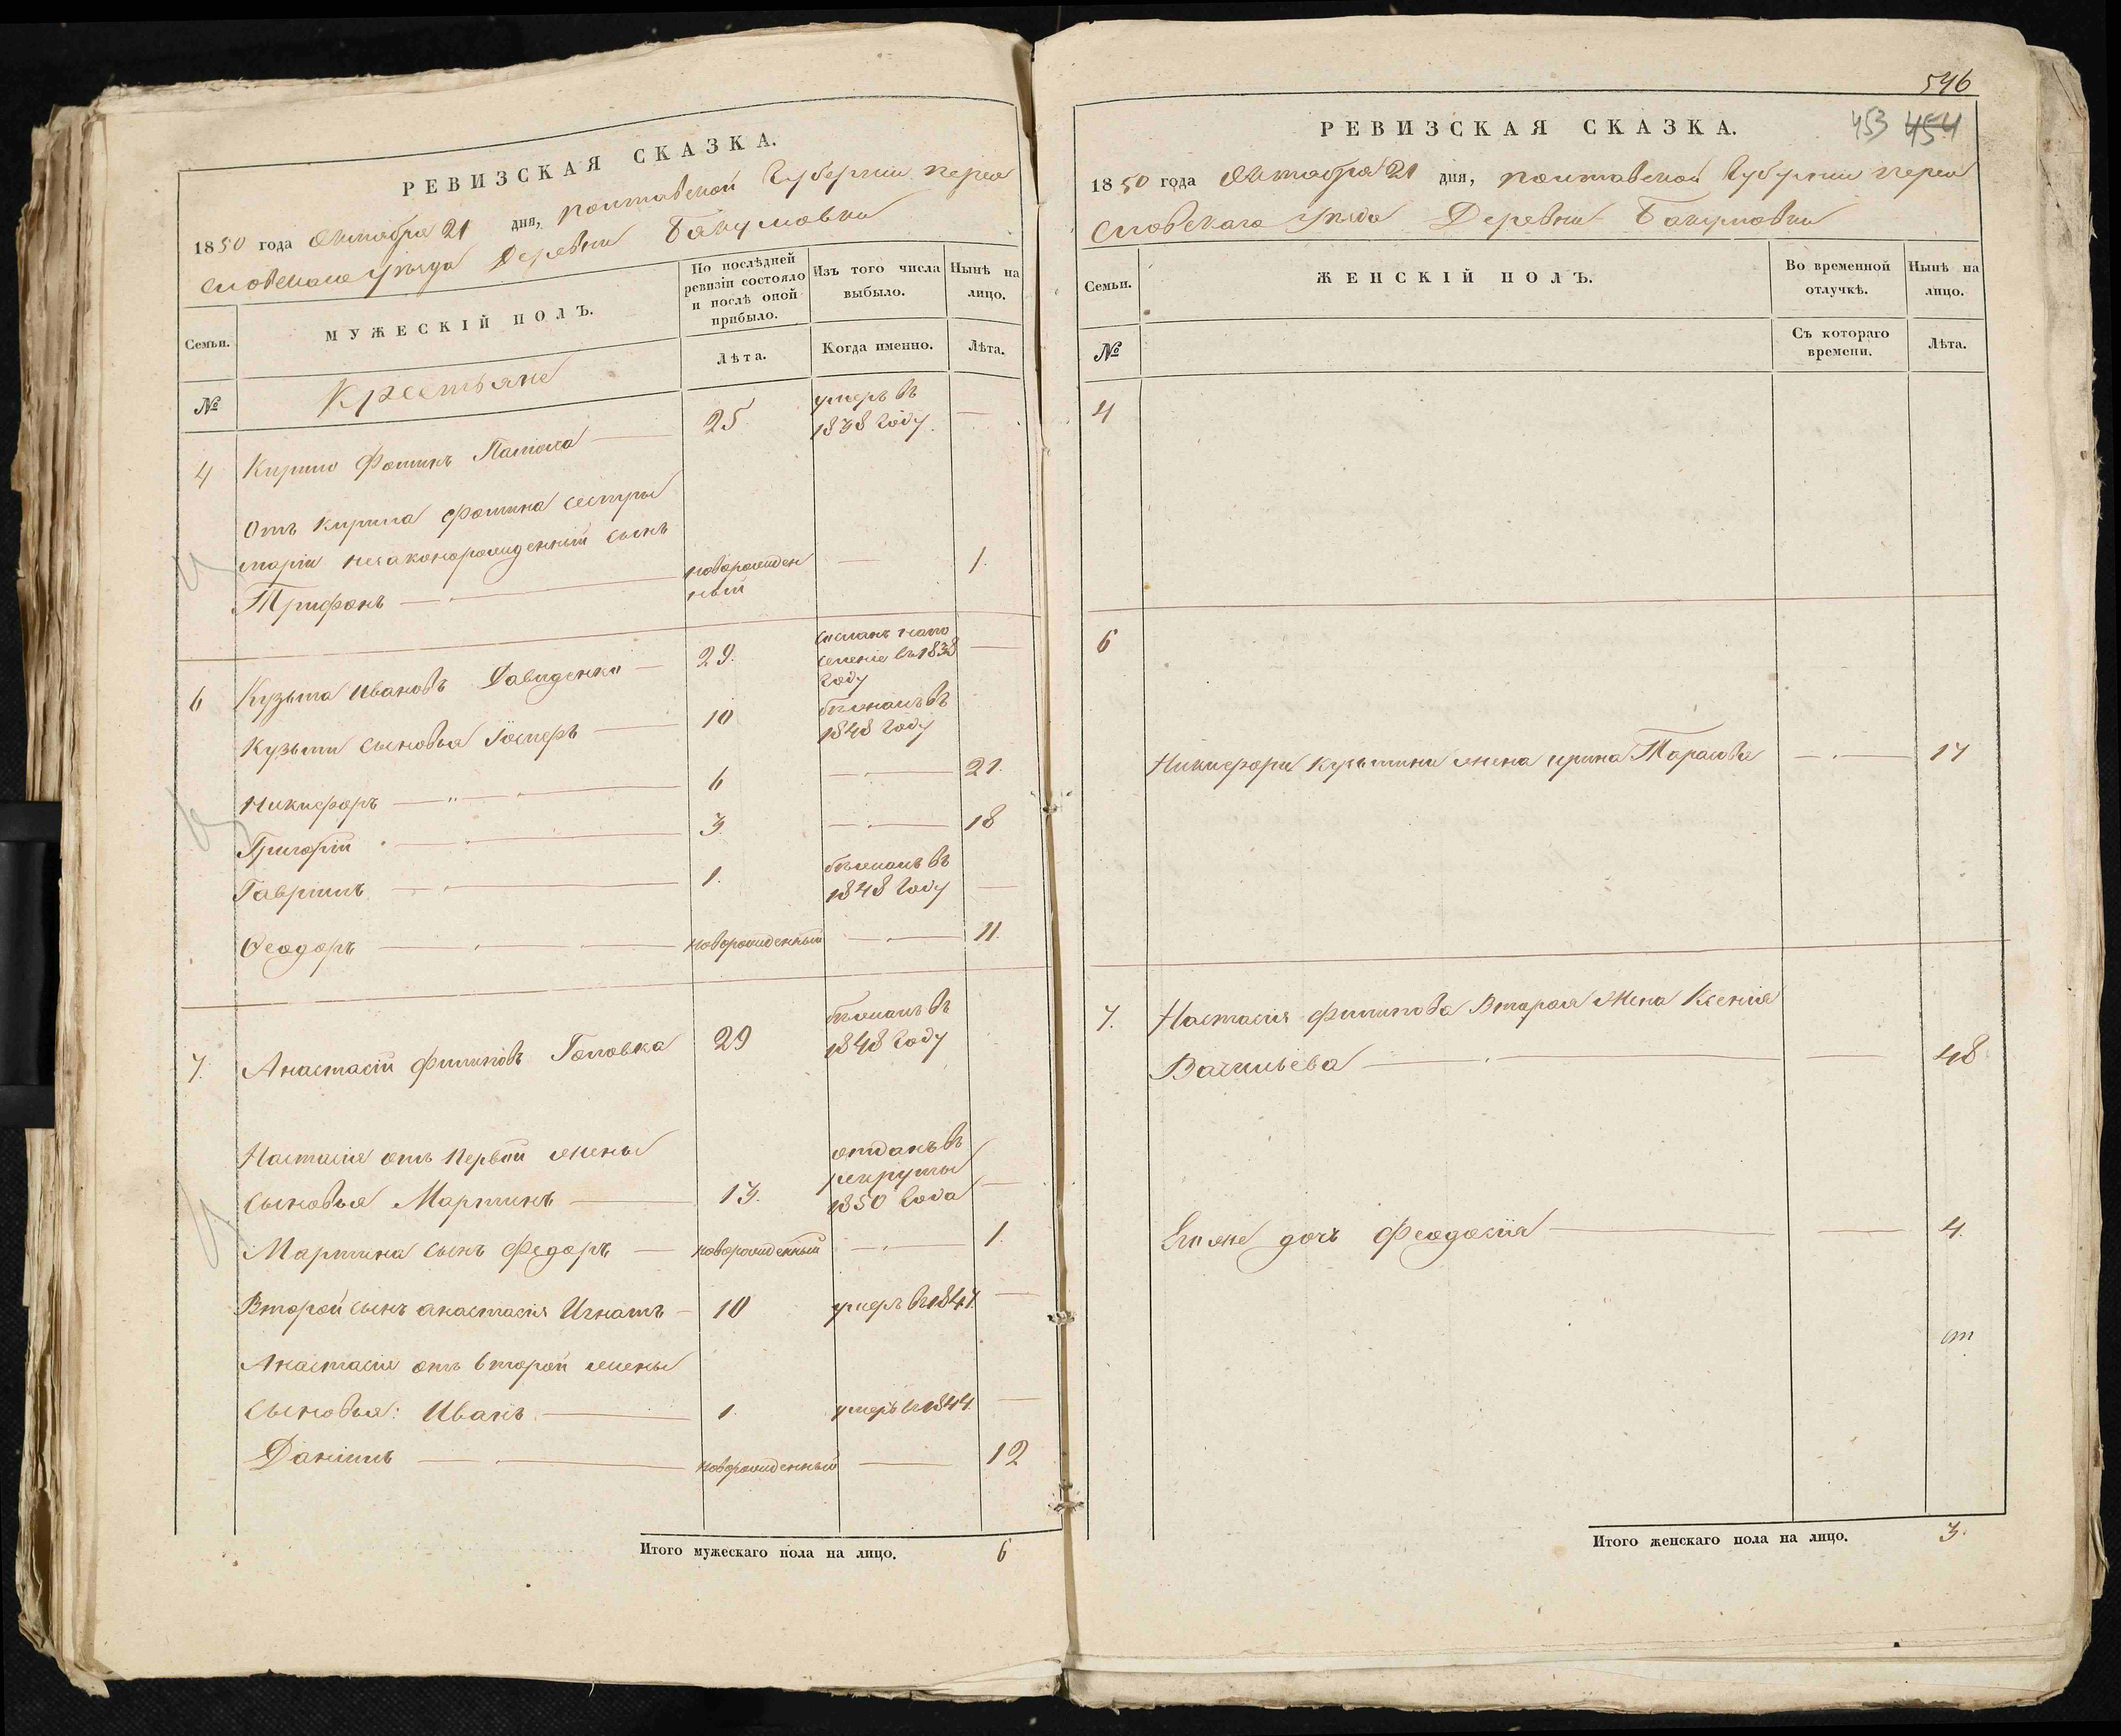 РЕВИЗСКАЯ СКАЗКА.
1850 года Октября 21 дня, Полтавской Губернии Перея
славскаго уѣзда Деревни Бакумовки
Семьи.
МУЖЕСКІЙ ПОЛЪ.
По послѣдней ревизіи состояло и послѣ оной прибыло.
Изъ того числа выбыло.
Нынѣ на лицо.
№
Лѣта.
Когда именно.
Лѣта.
Крестьяне
4 Кирило Фоминъ 25 умеръ въ
1838 году. —
Отъ Кирила Фомина сестры
маріи незаконорожденный сынъ
Трифонъ — новорожден
ный — 1.
6 Кузьма Ивановъ Давиденко — 29. сосланъ на по
селеніе въ 1838
году —
Кузьмы сыновья — 10 бѣжалъ въ
1848 году
Никифоръ — 6 — 21.
Григорій — 3. — 18
Гавріилъ — 1. бѣжалъ въ
1848 году —
Феодоръ — новорожденный — 11.
7. Анастасій Филиповъ Головка 29 бѣжалъ въ
1848 году
Настасія отъ первой жены
сыновья Мартинъ — 13. отданъ въ
рекруты
1850 года —
Мартина сынъ Федоръ — новорожденный — 1.
Второй сынъ анастасія Игнатъ — 10 умеръ въ 1847. —
Анастасія отъ второй жены
сыновья: Иванъ — 1. умеръ въ 1844. —
Даніилъ — новорожденный — 12
Итого мужескаго пола на лицо. 6
546
453 454
РЕВИЗСКАЯ СКАЗКА.
1850 года Октября 21 дня, Полтавской Губернии Перея
славскаго уѣзда Деревни Бакумовки
Семьи.
ЖЕНСКІЙ ПОЛЪ.
Во временной отлучкѣ.
Нынѣ на лицо.
№
Съ котораго времени.
Лѣта.
4
6
Никифора Кузьмина жена ирина Тарасова — 17
7. Настасія Филипова Вторая Жена Ксенія
Васильева — — 48
Его же дочь Феодосія — — 4.
Итого женскаго пола на лицо. 3.